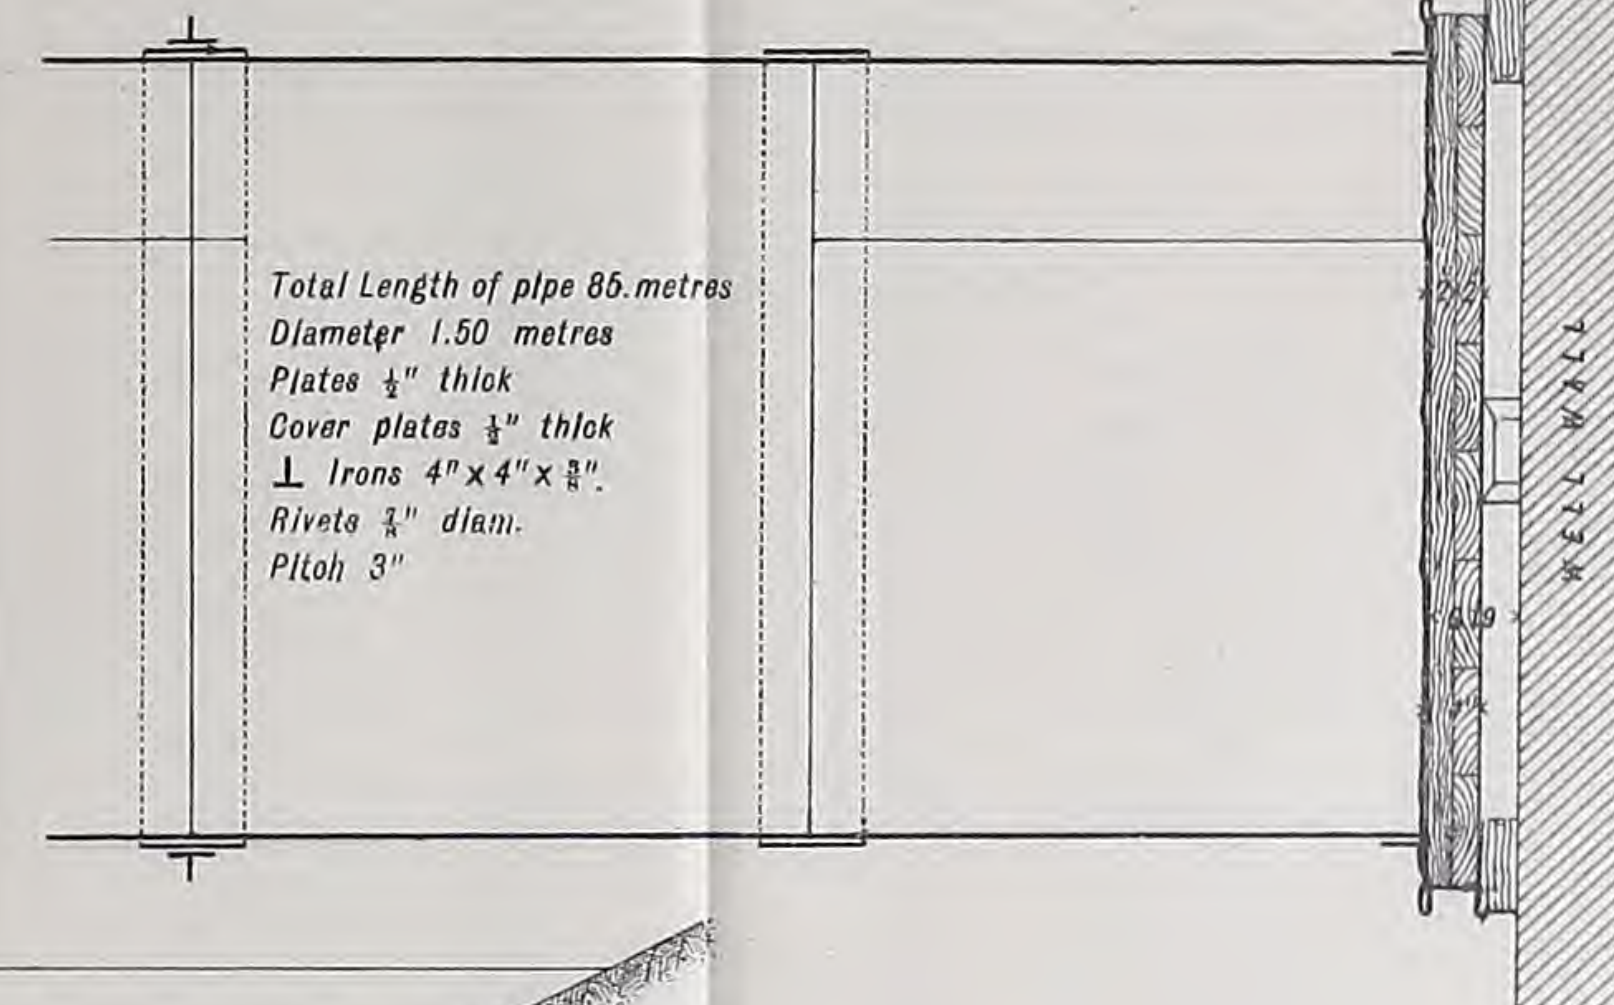 Total Length of pipe 85.metres
Diameter 1.50 metres
Plates ½" thick
Cover plates ½" thick
⊥ Irons 4" x 4" x ⅜".
Rivets ⅞" diam.
Pitch 3"
2" 2"
0.19
WELL WALL